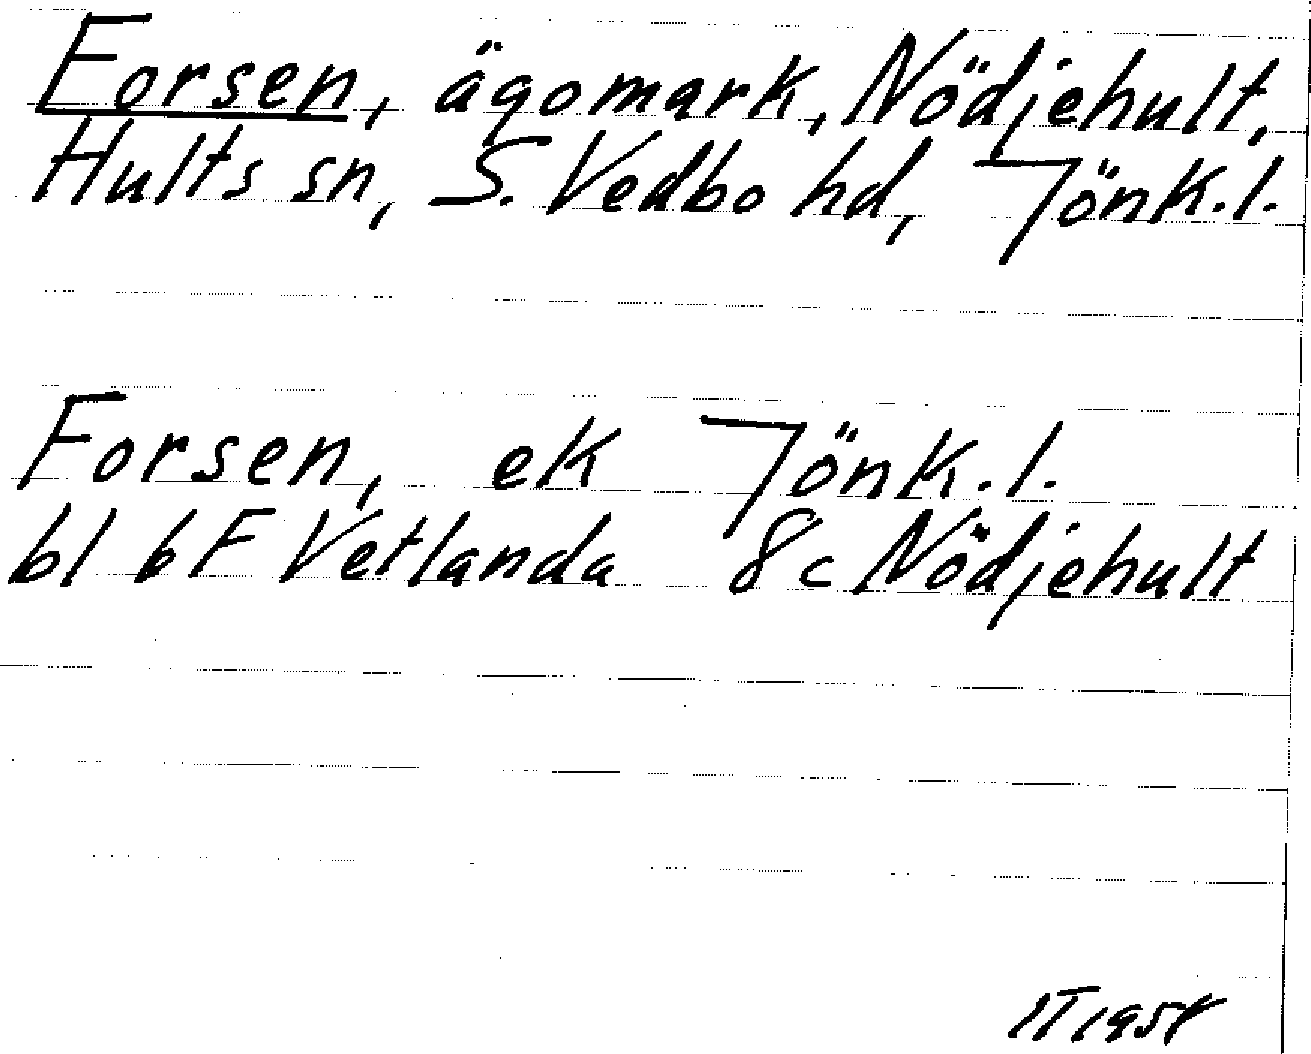 Forsen, ägomark, Nödjehult,
Hults sn, S. Vedbo hd, Jönk.l.
Forsen, ek Jönk.l.
bl 6F Vetlanda 8c Nödjehult